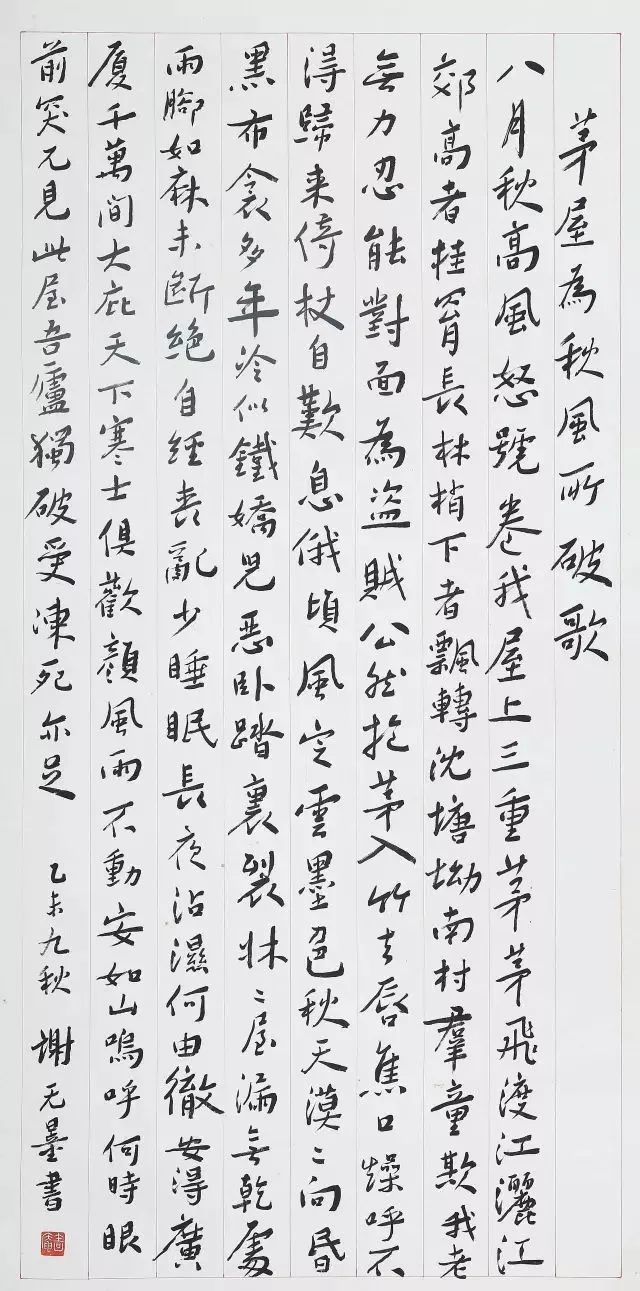 茅屋為秋風所破歌
八月秋高風怒號卷我屋上三重茅茅飛渡江灑江
郊高者挂罥長林梢下者飄轉沈塘坳南村羣童欺我老
無力忍能對面為盜賊公然抱茅入竹去唇焦口燥呼不
得歸来倚杖自歎息俄頃風定雲墨色秋天漠〻向昏
黑布衾多年冷似鐵嬌兒惡卧踏裏裂牀〻屋漏無乾處
雨腳如麻未斷絕自經喪亂少睡眠長夜沾濕何由徹安得廣
廈千萬間大庇天下寒士俱歡顏風雨不動安如山嗚呼何時眼
前突兀見此屋吾廬獨破受凍死亦足 乙未九秋 謝无墨書